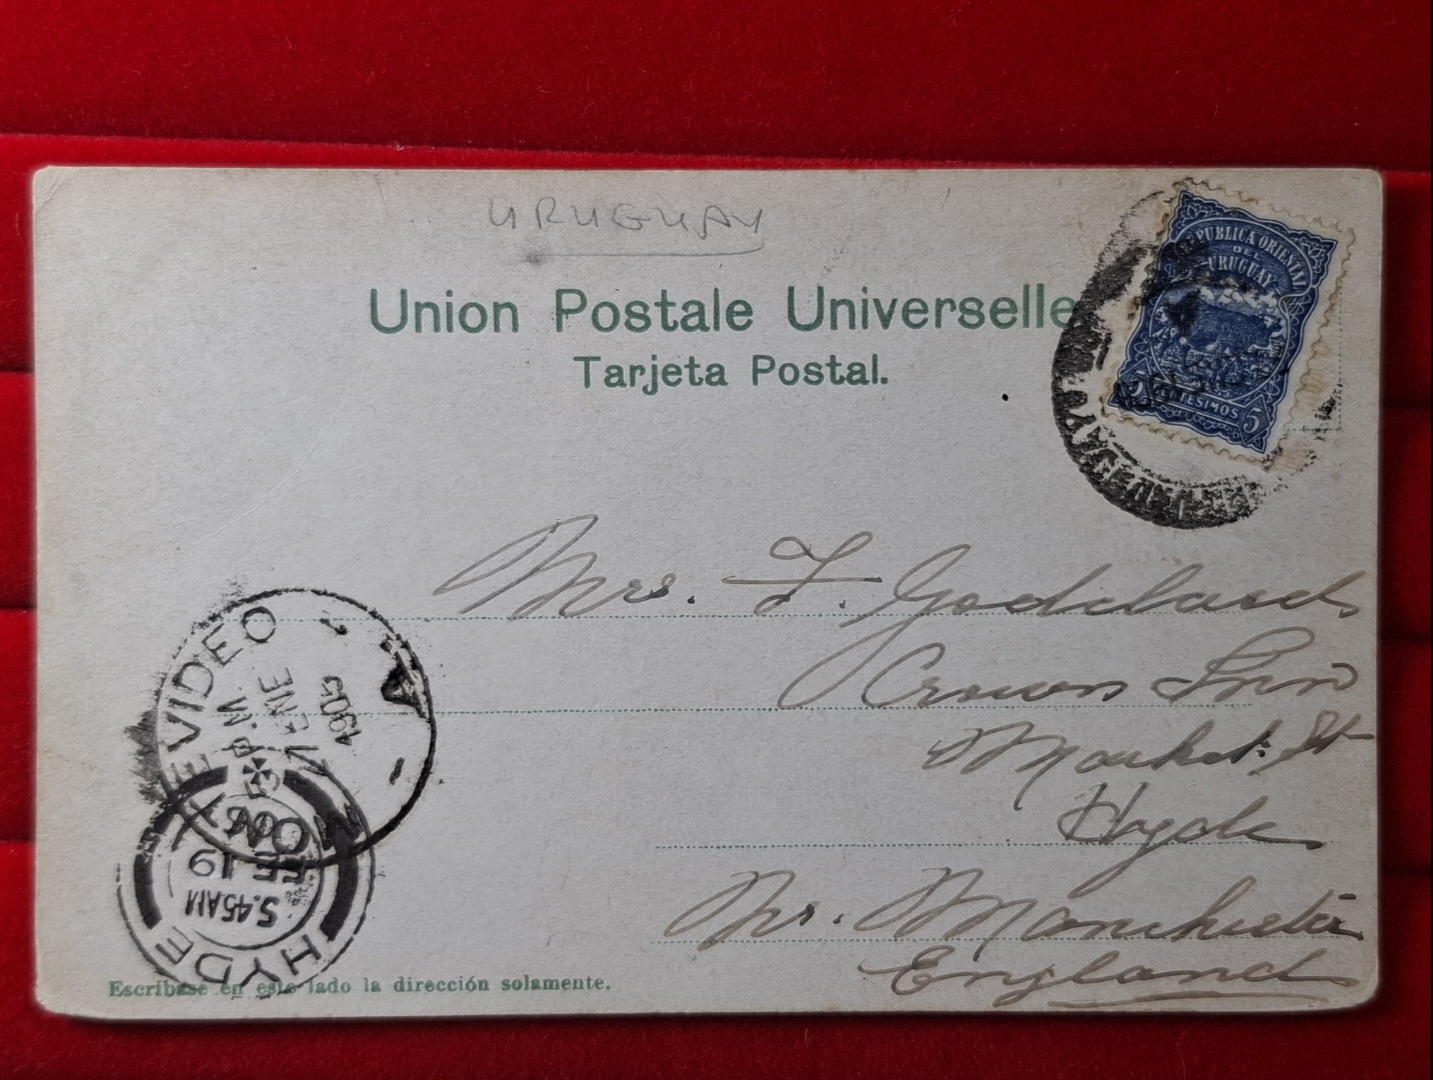 URUGUAY
Union Postale Universelle
Tarjeta Postal.
REPUBLICA ORIENTAL
DEL
URUGUAY
5 CENTESIMOS 5
Mrs. F. Goddard
Crown Inn
Market St
Hyde
Nr. Manchester
England
MONTEVIDEO
P.M.
ENE
1905
A
HYDE
5.45AM
FE 19
05
Escríbase en este lado la dirección solamente.